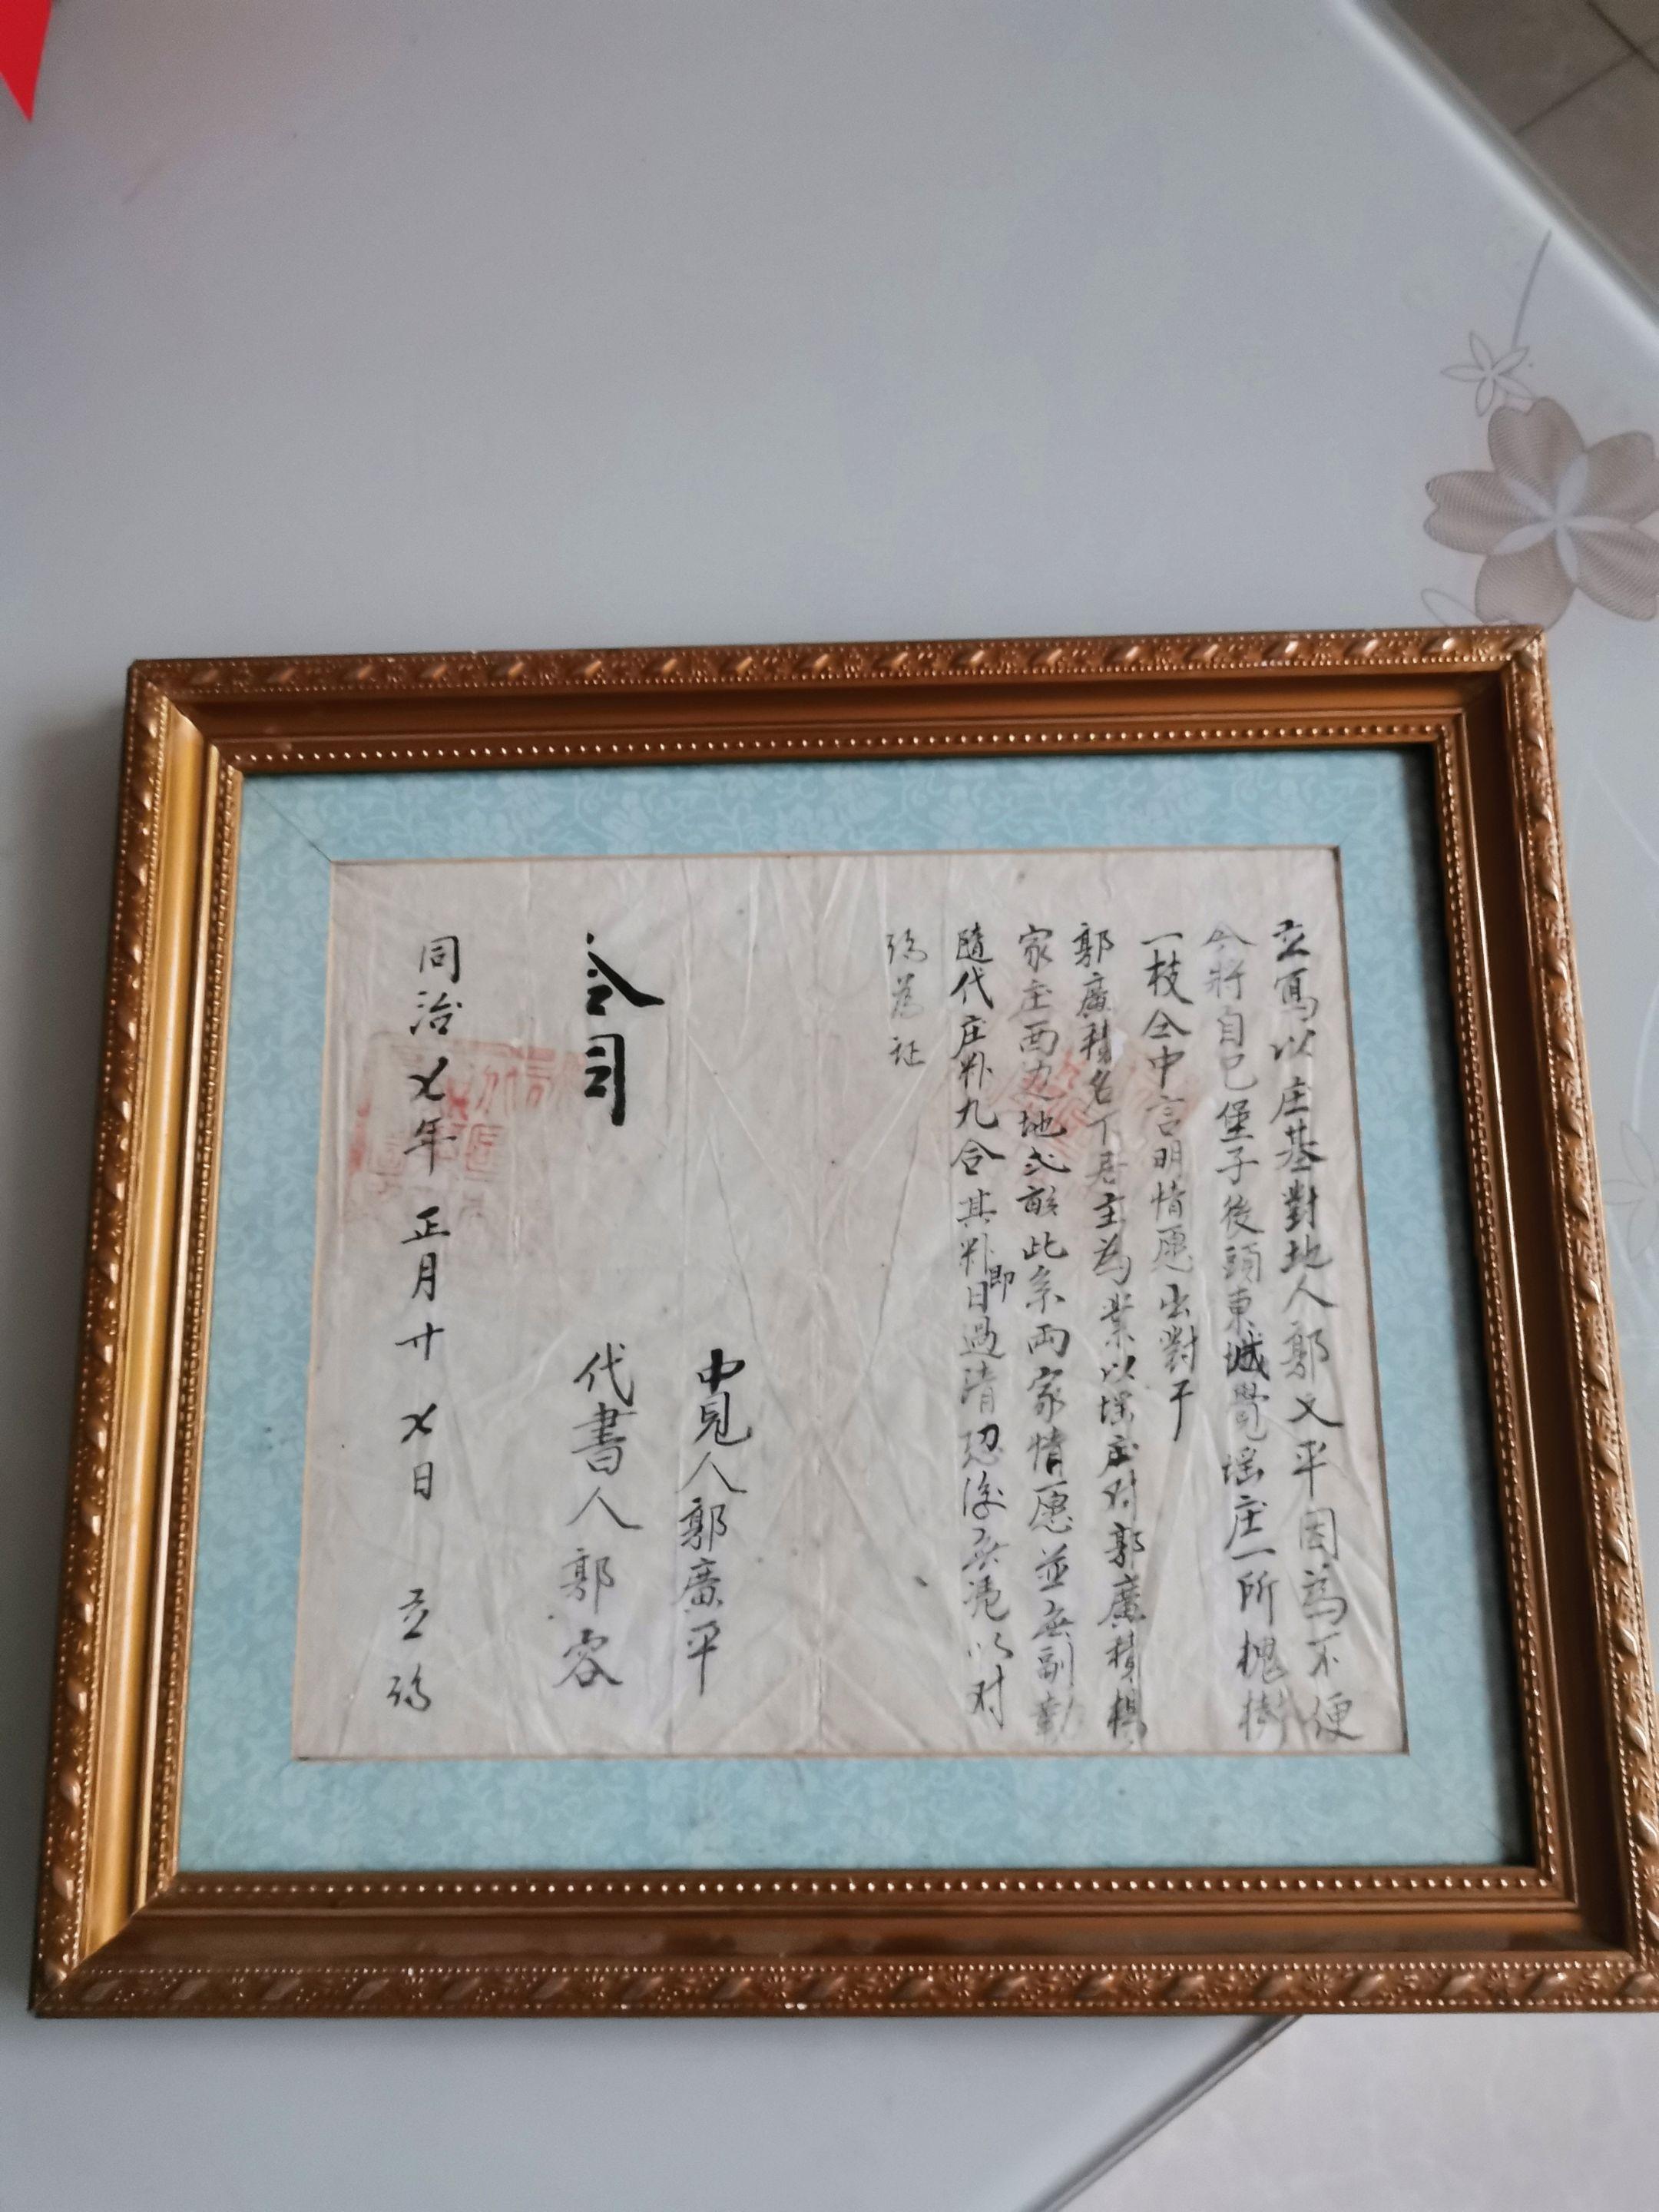 立寫以庄基對地人郭文平因為不便
今將自己堡子後頭東城㙮庄一所槐樹
一枝仝中言明情愿出對于
郭廣積名下居主為業以㙮庄对郭廣積楊
家庄西边地弍畝此系両家情愿並無
隨代庄粆九合其粆即日過清恐後無凴以对
約為証
仝司
中見人郭廣平
代書人郭容
同治七年正月廿七日 立約